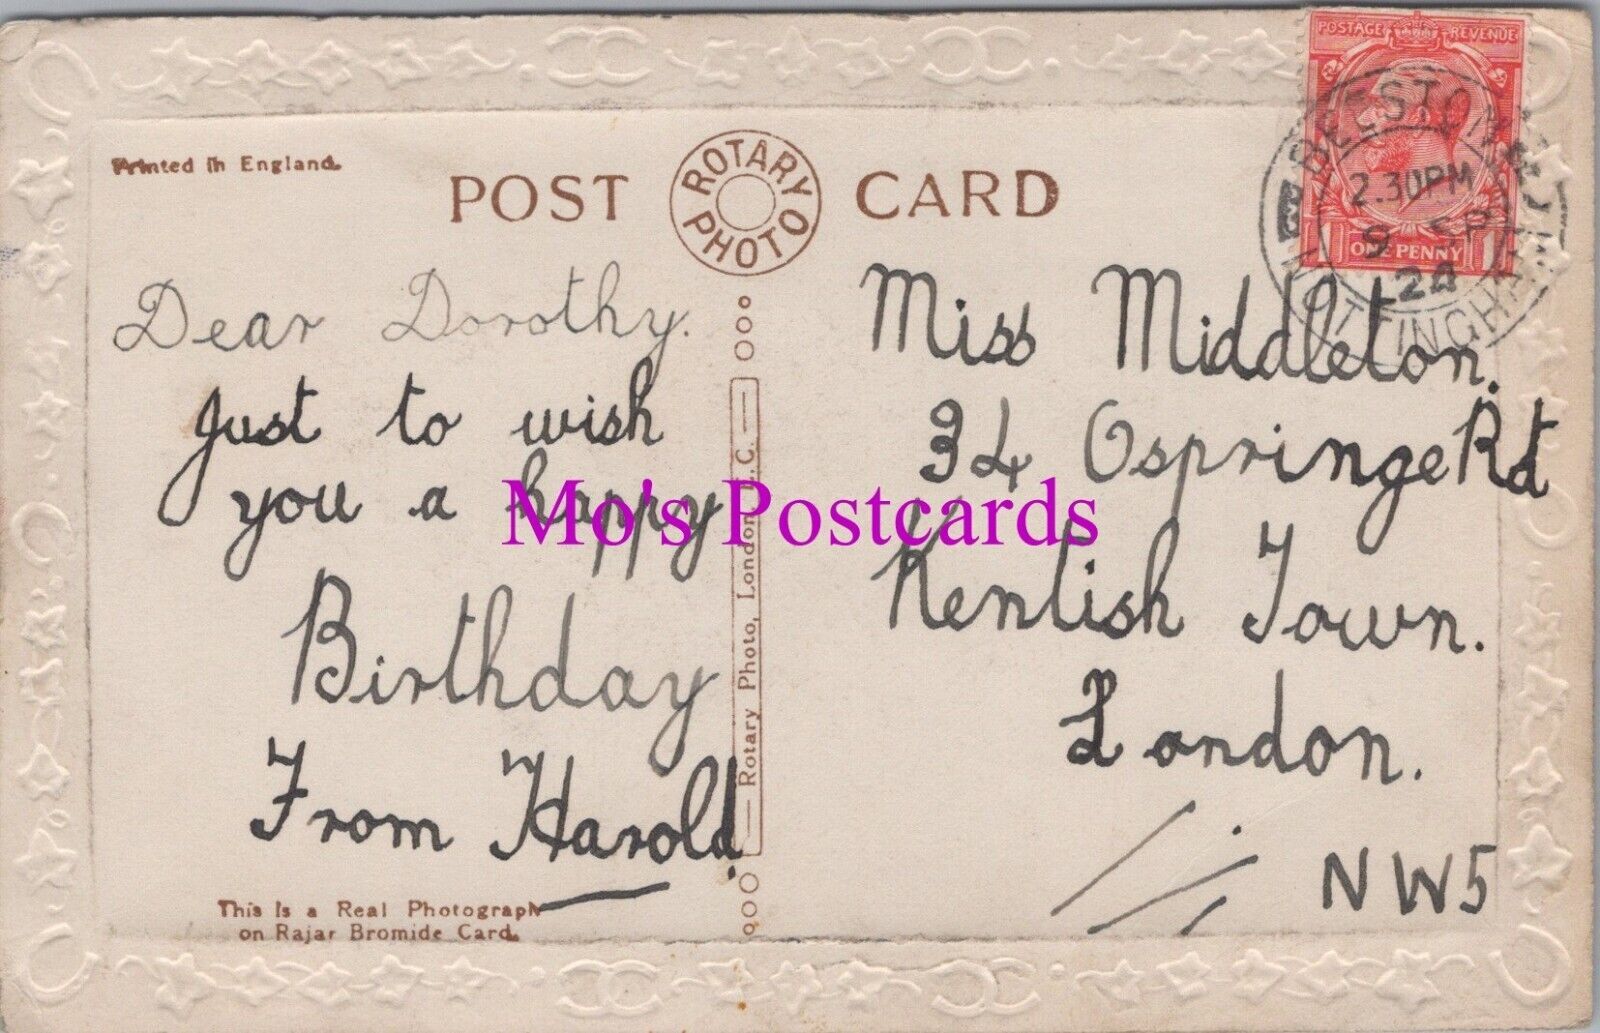 Printed in England.
POST CARD
ROTARY PHOTO
POSTAGE REVENUE
ONE PENNY
BEESTON
2.30PM
9 SP
24
NOTTINGHAM
Dear Dorothy.
Just to wish
you a happy
Birthday
From Harold.
This Is a Real Photograph
on Rajar Bromide Card.
Rotary Photo, London, E.C.
Miss Middleton.
34 Ospringe Rd
Kentish Town.
London.
NW5
Mo's Postcards